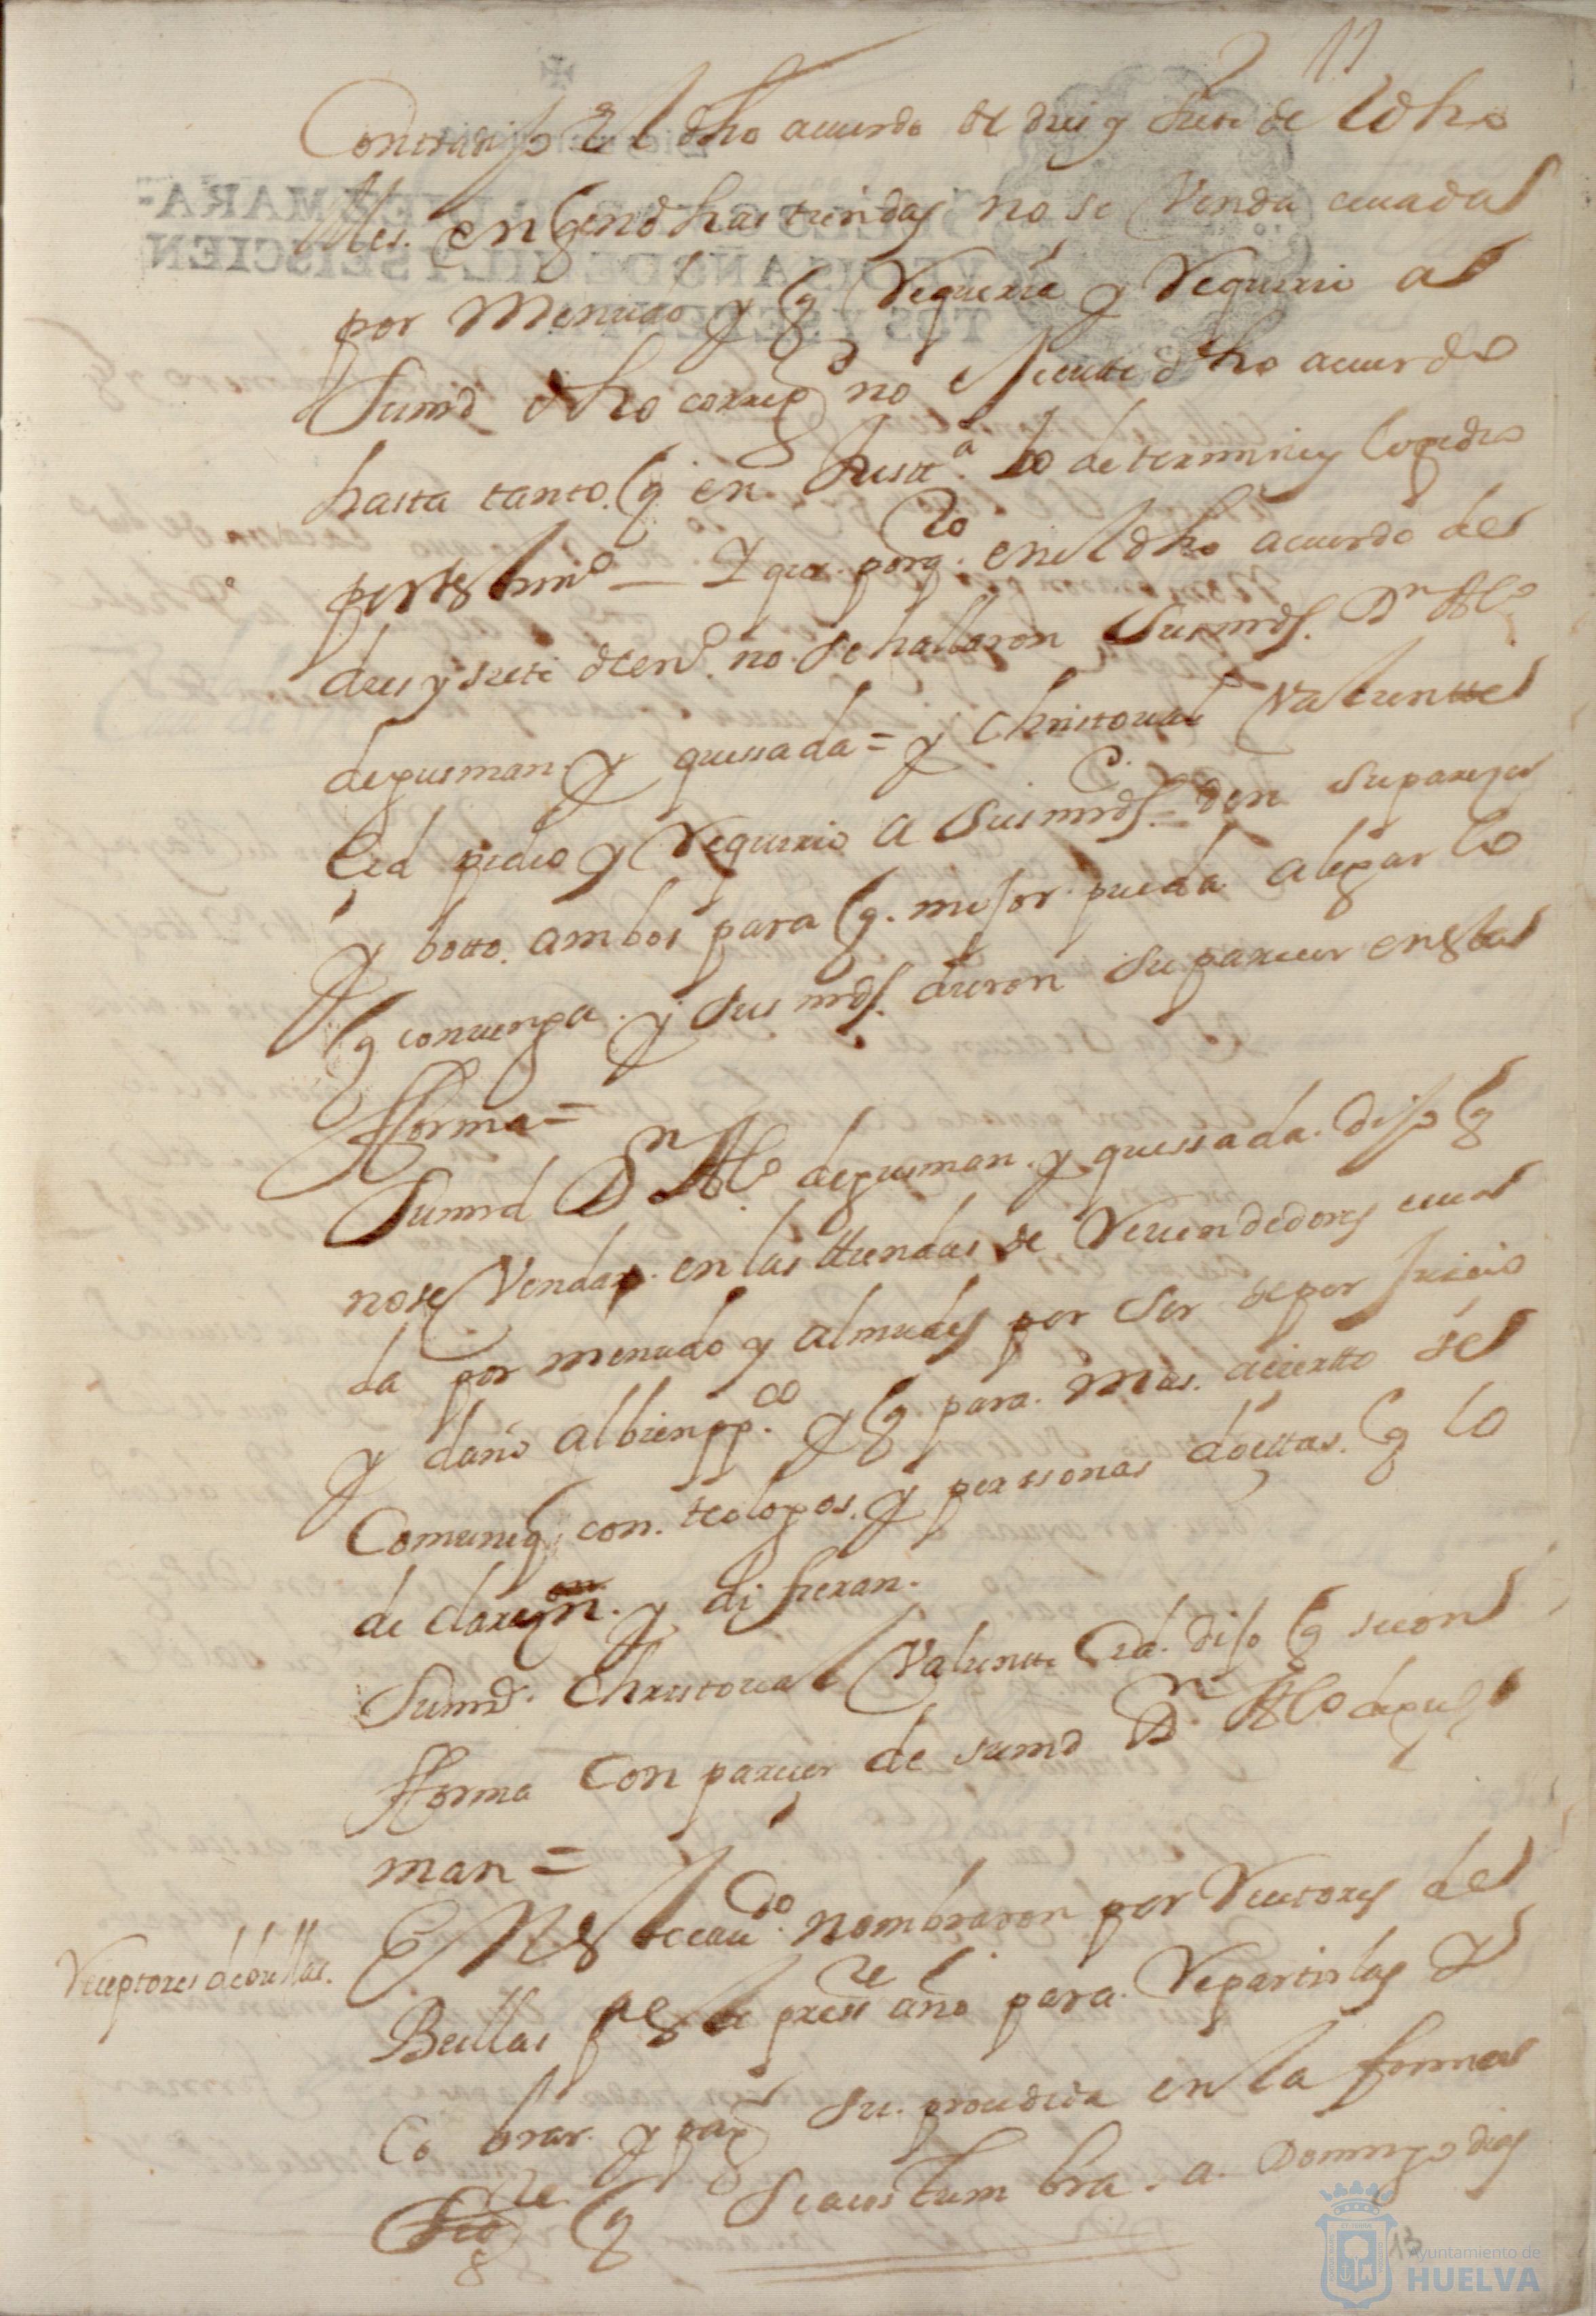 11
Contradijo el dho acuerdo de dies y siete de ldho
Mes. en q en dhas tiendas no se Venda ceuada
por Menudo y q Requerie y Requirio al
Sumd dho correxor no execute dho acuerdo
hasta tanto. q en Justa. lo determine y lo pidio
por testimo — Y que. porq. en el dho acuerdo de
dies y siete de eno. no se hallaron Susmds. Dn Alo
de gusman. y quessada = y Christoual Valiente
Cid pidio y Requirio a Susmds. den su parezer
y botto. ambos para q. mejor. pueda alegar lo
q conuenga. y sus mds. dieron su parecer en esta
fforma =
Sumd Dn Alo. de gusman. y quessada. dijo q
no se Venda. en las ttiendas de Reuendedores ceua
da por menudo y almudes por ser de perjuicio
y daño al bien ppco. y q. para. mas. acierto se
Comuniq con. teologos. y perssonas doctas. q lo
de claren. y difieran.
Sumd. Christoual Valiente Cid. dijo q se con
fforma Con parecer de sumd Dn. Alo de gus
man =
En este caudo. nombraron por Receptores de
Receptores de bullas.
Bullas deste press.te año para. Repartirlas y
Co brar. y pag su. prosedida en la forma
q se acostumbra. a. Domingo dias
13
Ayuntamiento de
HUELVA